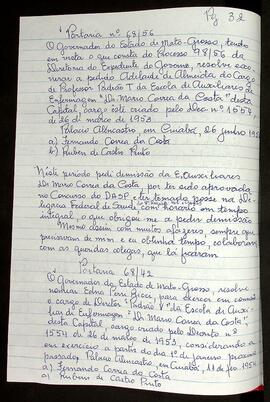 Pg 32
Portaria nº 68/56
O Governador do Estado de Mato-Grosso, tendo
em vista o que consta do Processo 98/56 da
Diretoria do Expediente do Governo, resolve exo
nerar a pedido Adelaide de Almeida do Cargo
de Professor Padrão T da Escola de Auxiliares de
Enfermagem "Dr Mario Correa da Costa" desta
Capital, cargo êste criado pelo Dec nº 1554
de 26 de março de 1953
Palacio Alencastro, em Cuiabá, 26 junho 195
a) Fernando Correa da Costa
b) Rubem de Castro Pinto
Neste período pedi demissão da E. Auxiliares
Dr Mario Correa da Costa, por ter sido aprovada
no Concurso do DASP e ter tomado posse na De
legacia Federal de Saúde com horário em tempo
integral, o que obrigou me a pedir demissão
Mesmo assim com muitos afazeres, sempre que
precisavam de mim e eu obtinha tempo, colaborava
com as queridas colegas, que lá ficaram
Portaria 68/42
O Governador do Estado de Mato-Grosso, resolve
nomear Edna Perri Ricci, para exercer em comissão
o cargo de Diretor Padrão V da Escola de Auxi
liar de Enfermagem "Dr Mario Correa da Costa",
desta Capital, cargo criado pelo Decreto nº
1554 de 26 de março de 1953, considerando a
em exercício a partir do dia 1º de janeiro próximo
passado, Palacio Alencastro, em Cuiabá, 11 de fev. 1954
a) Fernando Correa da Costa
a) Rubens de Castro Pinto